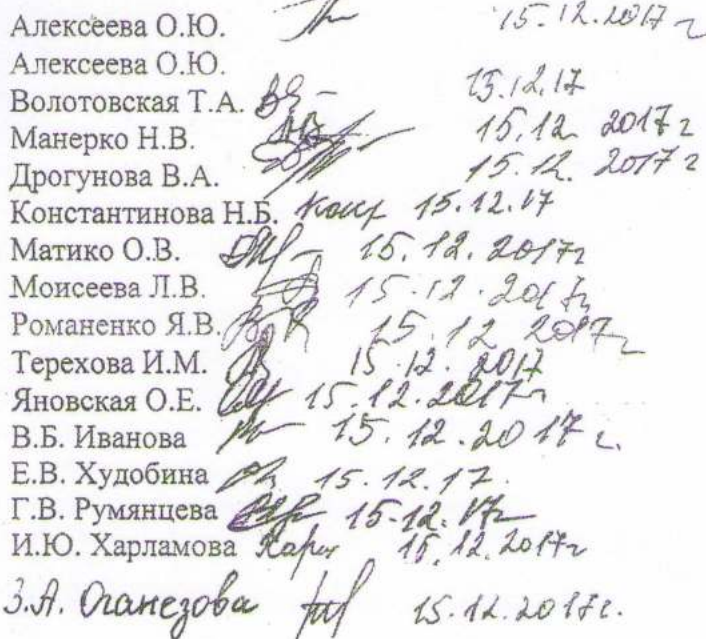 Алексеева О.Ю. 15.12.2017 г
Алексеева О.Ю.
Волотовская Т.А. 15.12.17
Манерко Н.В. 15.12 2017 г
Дрогунова В.А. 15.12. 2017 г
Константинова Н.Б. 15.12.17
Матико О.В. 15.12.2017г
Моисеева Л.В. 15.12.2017г
Романенко Я.В. 15.12 2017г
Терехова И.М. 15.12.2017
Яновская О.Е. 15.12.2017г
В.Б. Иванова 15.12.2017 г.
Е.В. Худобина 15.12.17.
Г.В. Румянцева 15-12.17г
И.Ю. Харламова 15.12.2017г
З.А. Оганезова 15.12.2017г.